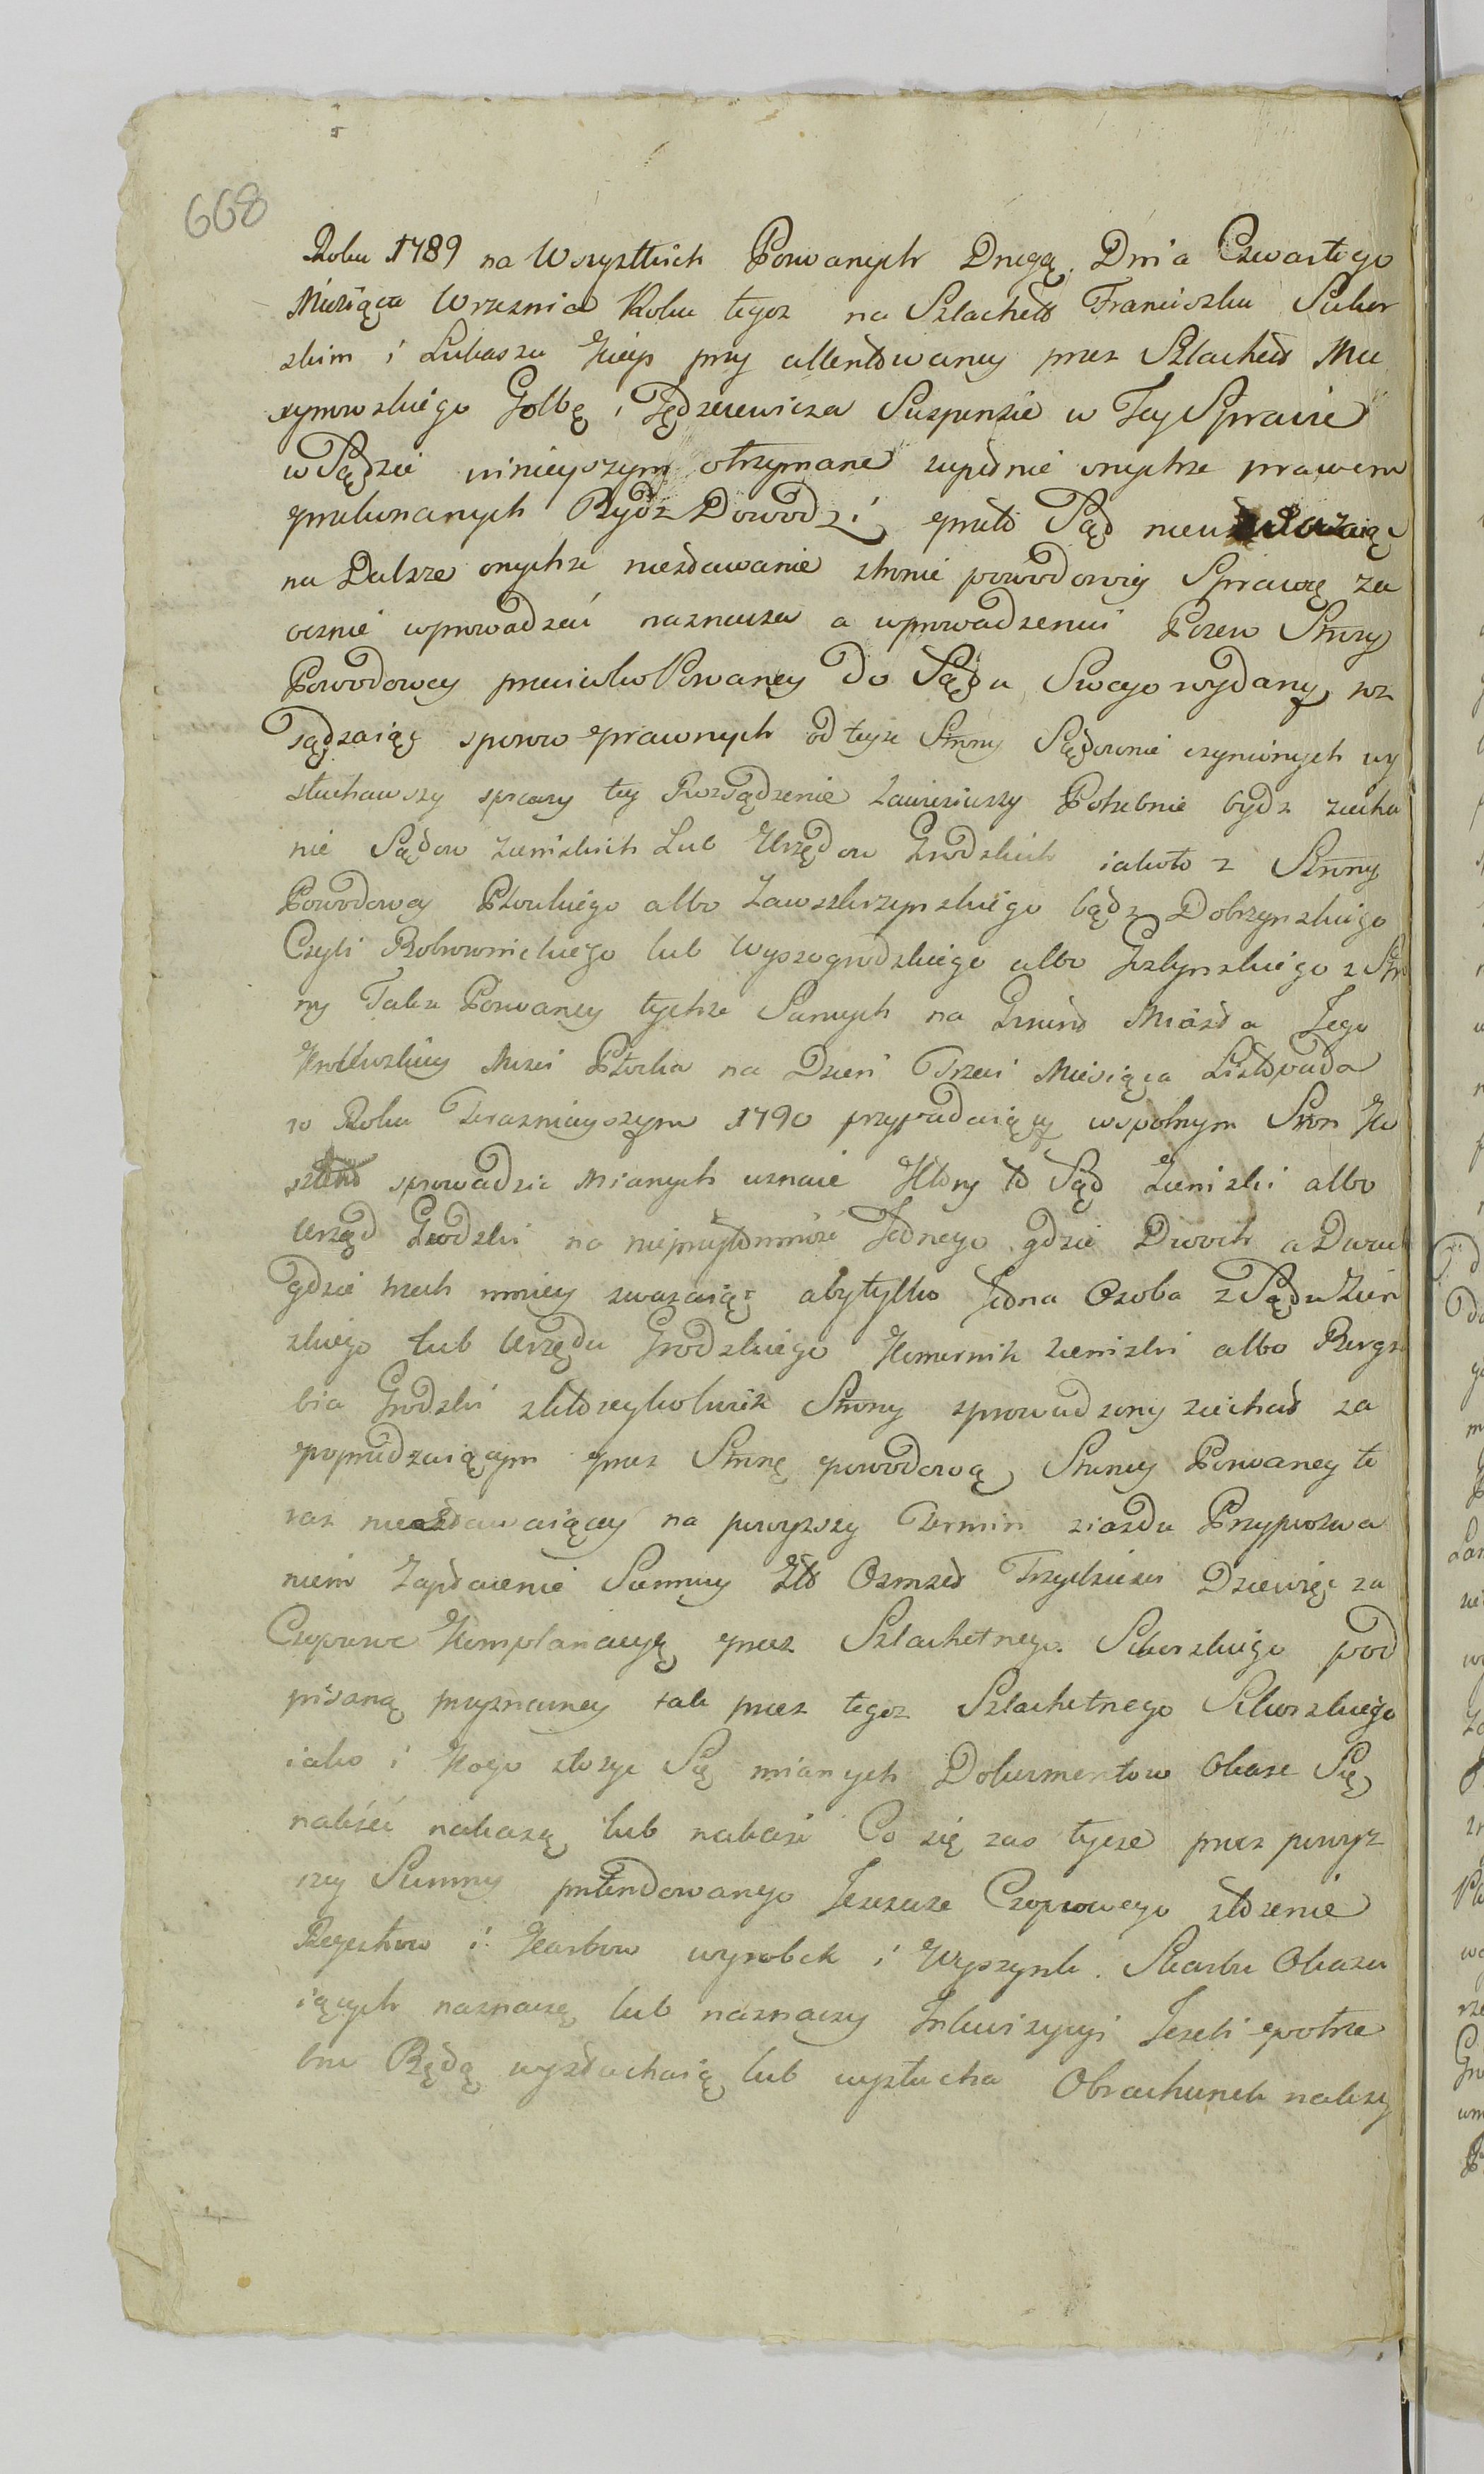 668
Roku 1789 na Wszystkich Pozwanych Drugą Dnia Czwartego
Miesiąca Wrzesnia Roku tegoz na Szlachetn Franciszku Sikor
skim i Lukaszu przy attentowaney przez Szlachetn Ma
xymowskiego Gołbę i Jędzeiewicza Suspensie w Tey Sprawie
w Sądzie ninieyszym otrzymane zupełnie onychze prawem
przekonanych Bydź Dowodzi, przeto Sąd nieuważaiąc
na Dalsze onychze niestawanie stronie powodowey Sprawę za
ocznie wprowadzać naznacza a wprowadzeniu Pozew Strony
Powodowey przeciwko Pozwaney do Sądu Swego wydany, roz
sądzaiąc sporow prawnych od teyze Strony Sądownie czynionych wy
słuchawszy sprawy tey Rozsądzenie zawiesiwszy Potrzebnie bydz ziecha
nie Sądow Ziemskich Lub Urzędow Grodzkich iakoto z Strony
Powodowey Płockiego albo Zawskrzynskiego bądz Dobrzynskiego
Czyli Bobrownickiego lub Wyszogrodzkiego albo Gostynskiego z Stro
ny Takze Pozwaney tychze Samych na Grunt Miasta Jego
Krolewskiey Mści Płocka na Dzien Trzeci Miesiąca Listopada
w Roku Terazniejszym 1790 przypadaiący wspolnym Stron Ko
sztem sprowadzic Mianych uznaie Ktory to Sąd Ziemski albo
Urząd Grodzki na nieprzytomność Jednego gdzie Dwoch a Dwuch
gdzie trzech mniey zwazaiąc abytylko Jedna Osoba z Sądu Ziem
skiego lub Urzędu Grodzkiego Komornik Ziemski albo Burgra
bia Grodzki z ktoreykolwiek Strony sprowadzony ziechał za
poprzedzaiącym przez Stronę powodową, Strony Pozwaney te
raz niestawaiącey na powyzszy Termin ziazdu Przypozwa
niem Zapłacenie Summy Zło Osmset Trzydziesci Dziewięć za
Czopowe Komplanacyą przez Szlachetnego Sikorskiego pod
pisaną przyznaney tak przez tegoz Szlachetnego Sikorskiego
iako i Kogo z tozyc Się mianych Dokumentow Okaze Się,
nalezeć nakazą, lub nakaze Co się zas tycze przez powyz
szey Summy pretendowanego Jeszcze Czopowego złozenie
Regestrow i Karbow wyrobek i Wyszynk Skarbu Okazu
iących naznaczą lub naznaczy Inkwizycyi Jezeli potrze
bne Będą wysłuchaią lub wysłucha Obrachunek nalezy